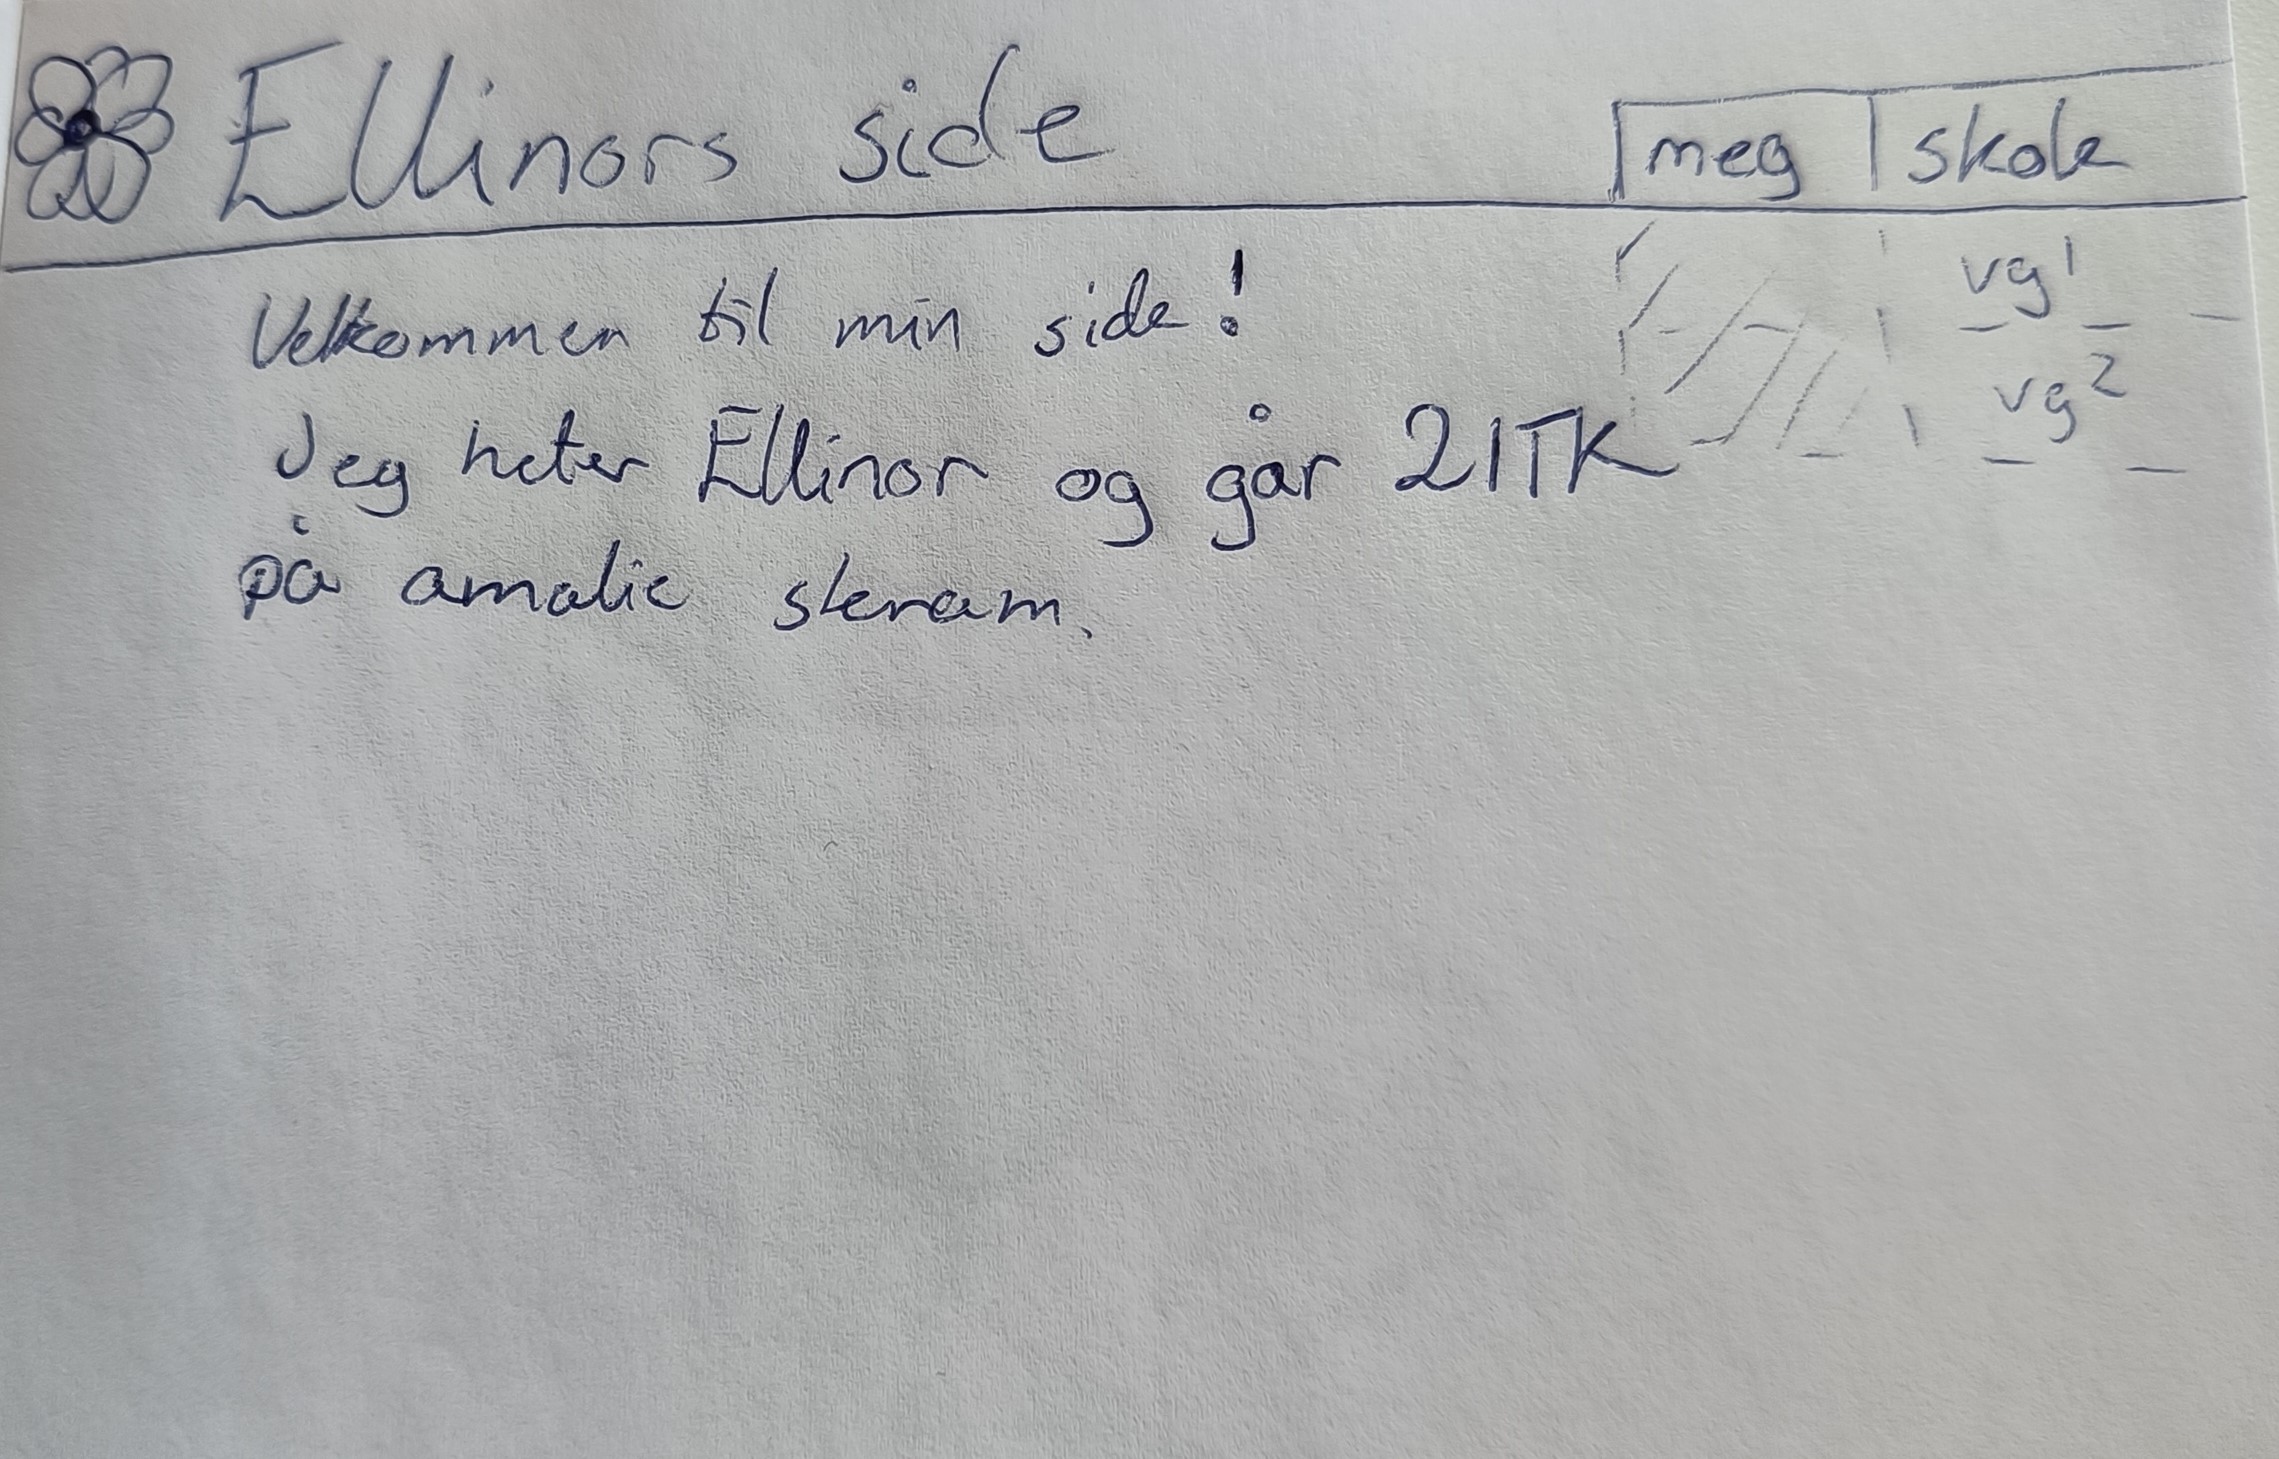 Ellinors side
meg skole
vg1
vg2
Velkommen til min side!
Jeg heter Ellinor og går 2ITK
på amalie skram.